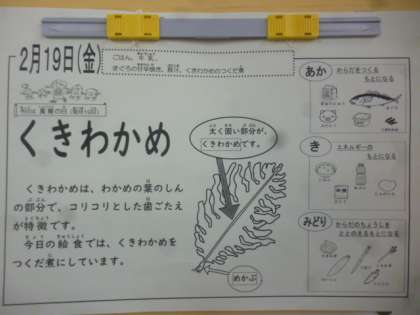 2月19日(金)
ごはん、牛乳、
くきわかめ
くきわかめは、わかめの葉のしん
の部分で、コリコリとした歯ごたえ
が特徴です。
今日の給食では、くきわかめを
つくだ煮にしています。
太く固い部分が、
くきわかめです。
めかぶ
あか
からだをつくる
もとになる
き
エネルギーの
もとになる
みどり
からだのちょうしを
ととのえるもとになる